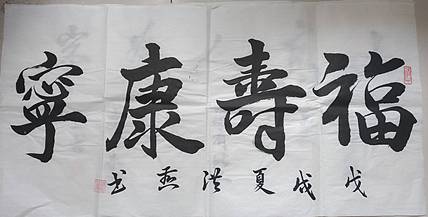 福壽康寧
戊戌夏洪燕书